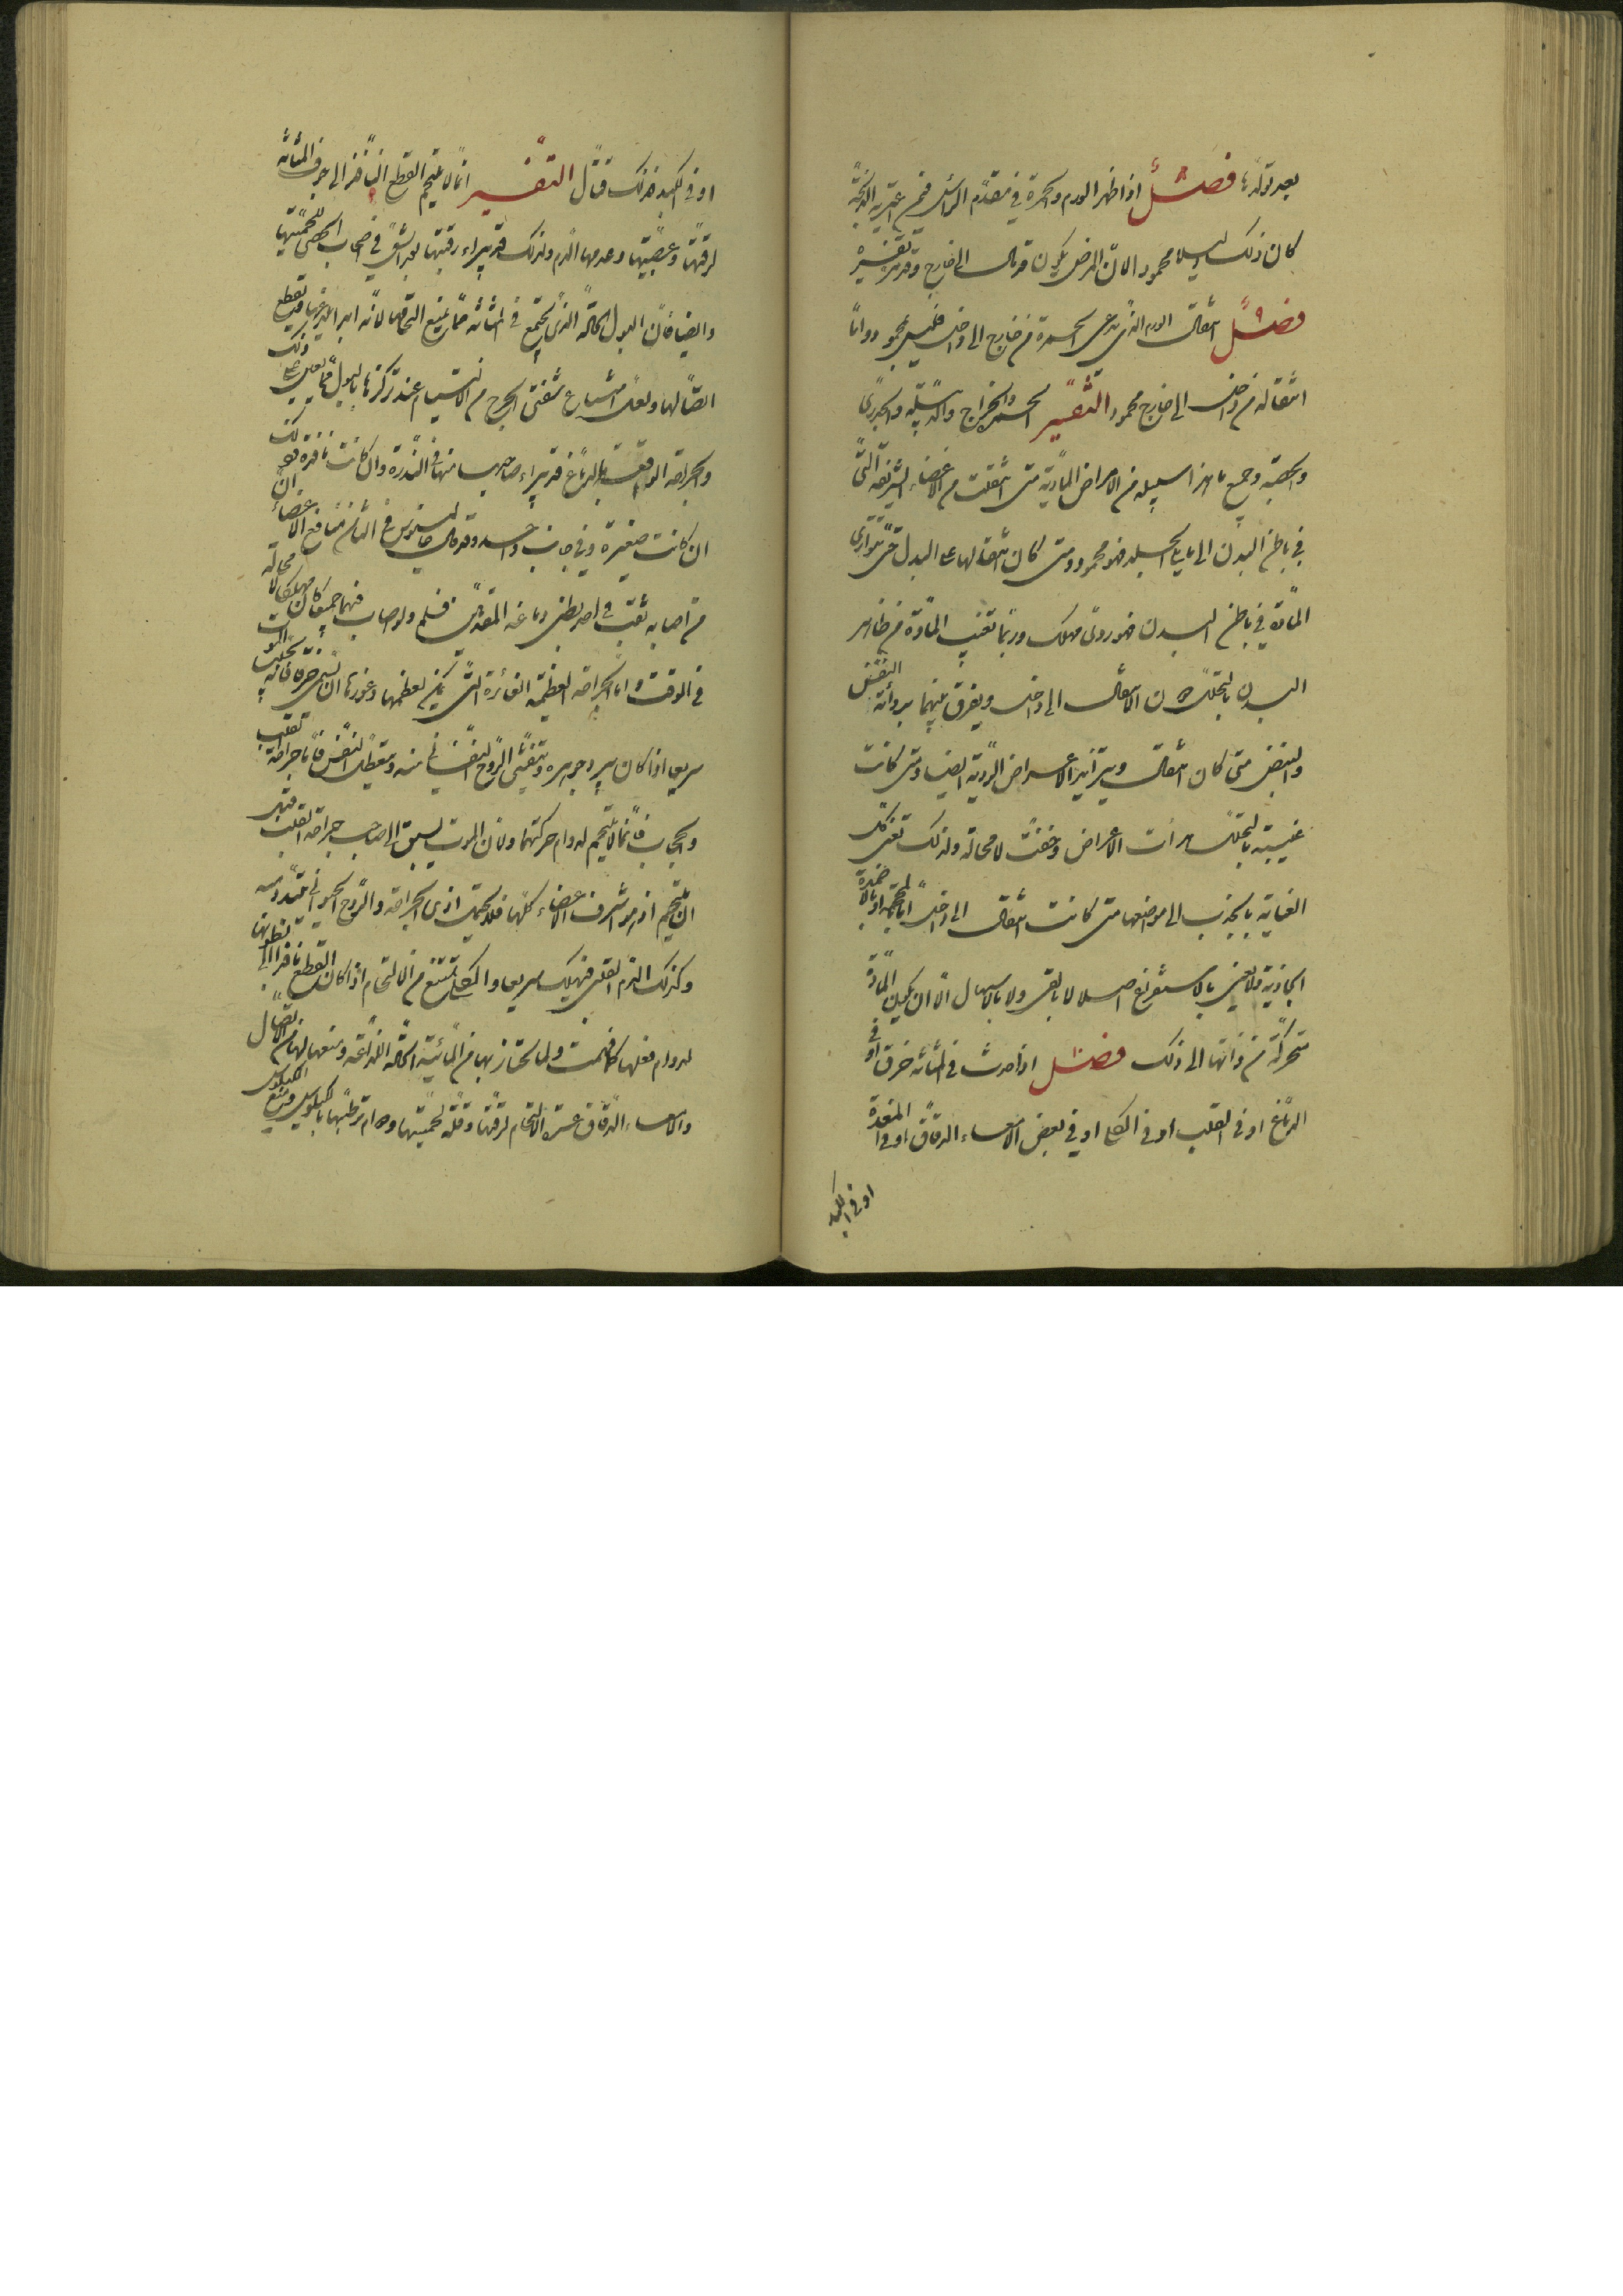 بعد تولّدها فصل اذا ظهر الورم والحمرة في مقدّم الرأس فيمن اعترته الذبحة
كان ذلك دليلا محمودا لانّ المرض يكون قد مال الى خارج وقد مرّ تفسيره
فصل انتقال الورم الذي يدعى الحمرة من خارج الى داخل فليس بمحمود وامّا
انتقاله من داخل الى خارج محمود التفسير الحمرة والخراج والدبيلة والجدري
والحصبة وجميع ما هذا سبيله من الامراض المادّية متى انتقلت من الاعضاء الشريفة التي
في باطن البدن الى ما يلي الجلد فهو محمود ومتى كان انتقالها على البدل حتّى تتوارى
المادّة في باطن البدن فهو ردئ مهلك وربّما تغيب المادّة من ظاهر
البدن بالتحلّل دون الانتقال الى داخل ويفرق بينهما برداءة التنفّس
والنبض متى كان انتقال وبتزايد الاعراض الرديّة ايضا ومتى كانت
غيبته بالتحلّل هدأت الاعراض وخفّت لا محالة ولذلك تعنى كلّ
العناية بالجذب الى موضعها متى كانت انتقال الى داخل امّا بالمحجمة او بالاضمدة
الجاذبة ولا تعنى بالاستفراغ اصلا لا بالقئ ولا بالاسهال الّا ان يكون المادّة
متحرّكة من ذاتها الى ذلك فصل اذا حدث في المثانة خرق او في
الدماغ او في القلب او في الكلى او في بعض الامعاء الدقاق او في المعدة
او في الكبد
او في الكبد فذلك قتّال التفسير انّما لا يلتحم القطع النافذ الى جوف المثانة
لرقّتها وعصبيّتها وعدمها الدم ولذلك قد يبراء رقبتها بعد الشقّ في اصحاب الحصى للحميّتها
وايضا فانّ البول الحادّ الذي يجتمع في المثانة ممّا يمنع التحامها لانّه ابدا يلذعها فيقطع
اتّصالها ولعلّ امتناع شفتي الجرح من الالتيام عند تركّزها بالبول ممّا يعين على ذلك
والجراحة الواقعة بالدماغ قد يبراء صاحبها منها في الندرة وان كانت نافذة وذلك
ان كانت صغيرة وفي جانب واحد وقد قال جالينوس في الثامن من منافع الاعضاء انّ
من اصابه ثقب في احد بطني دماغه المقدّمين فسلم ولو اصاب فيهما جميعا كان مهلكا لا محالة
في الوقت وامّا الجراحة العظيمة الغائرة التي يمكن لعظمها وغورها ان يتبيّن جرمها فانّه يجلب الموت
سريعا اذا كان يبرد جوهره ويتفشّى الروح النفساني منه ويتعطّل التنفّس فامّا جراحة القلب
والحجاب فانّما لا يلتحم لدوام حركتهما ولانّ الموت يسبق الى صاحب جراحة القلب قبل
ان يلتحم اذ هو اشرف الاعضاء كلّها فلا يحتمل اذى الجراحة والروح الحيواني يتبدّد منه
وكذلك الدم القلبي فيهلك سريعا والكلى تمتنع من الالتحام اذا كان القطع نافذا الى بطونها
لدوام فعلها كما فهمت ولما تجتاز بها من المائيّة الحادّة اللذّاعة ومنعها لها من الاتّصال
والامعاء الدقاق عسرة الالتحام لرقّتها وقلّة لحميّتها ودوام ترطّبها بالكيلوس ومنع الكيلوس